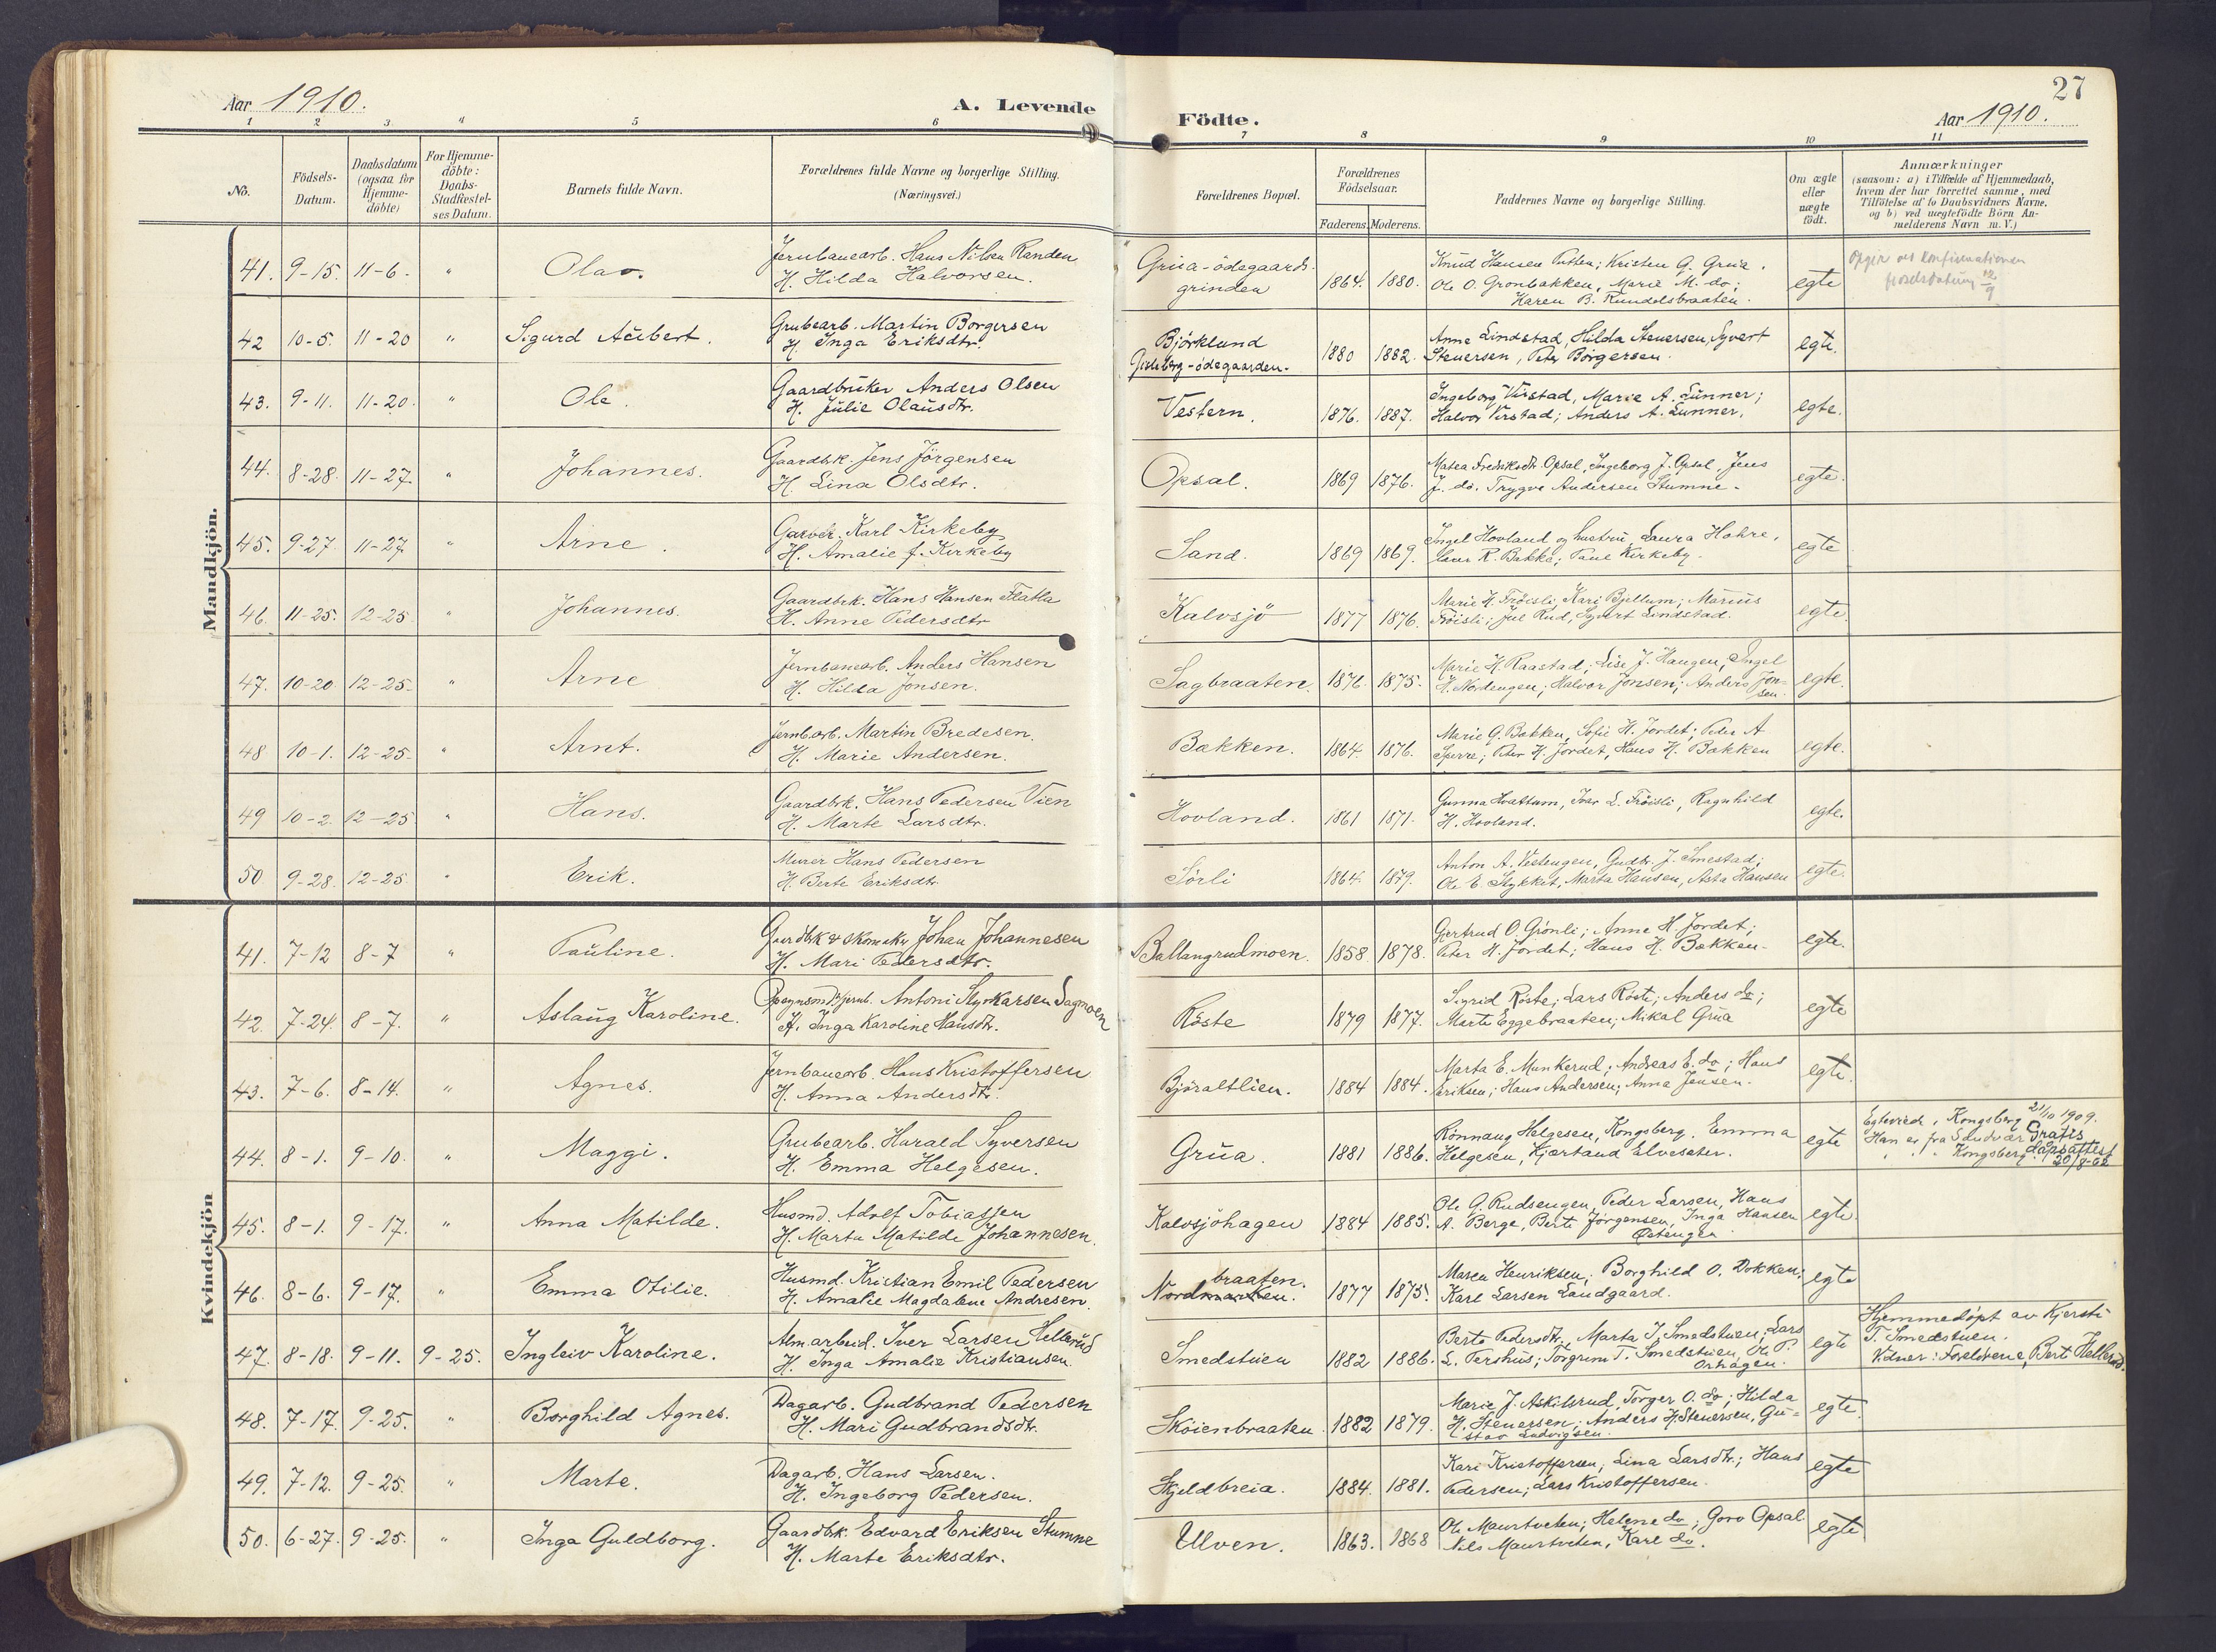 27
Aar 1910.
A. Levende
Födte.
Aar 1910.
1 2 3 4 5 6 7 8 9 10 11
No.
Födsels-Datum.
Daabsdatum (ogsaa for Hjemme-döbte)
For Hjemme-döbte: Daabs-Stadfæstel-ses Datum.
Barnets fulde Navn.
Forældrenes fulde Navne og borgerlige Stilling.
(Næringsvei.)
Forældrenes Bopæl.
Forældrenes Födselsaar.
Faderens. Moderens.
Faddernes Navne og borgerlige Stilling.
Om ægte eller uægte født.
Anmærkninger
(saasom: a) i Tilfælde af Hjemmedaab,
hvem der har forrettet samme, med
Tilföielse af to Daabsvidners Navne.
og b) ved uægtefödte Börn An-
melderens Navn m. V.)
Mandkjön.
41. 9-15. 11-6. " Olav. Jernbanearb. Hans Nilsen Randen
H. Hilda Halvorsen.
Grua-ödegaards-
grinden 1864. 1880.
Knud Hansen Putten; Kristen G. Grua.
Ole O. Grønbakken, Marie M. do;
Karen B. Rundelsbraaten.
egte
Opgir ved konfirmationen
fødselsdatum 12/9
42 10-5. 11-20 " Sigurd Albert. Grubearb. Martin Borgersen
H. Inga Eriksdtr.
Björklund
-ödegaarden. 1880 1882.
Anne Lindstad, Hilda Stenersen, Syvert
Stenersen, Peter Borgersen.
egte.
43. 9-11. 11-20. " Ole. Gaardbruker Anders Olsen
H. Julie Olausdtr.
Vestern. 1876. 1887.
Ingeborg Virstad, Marie A. Lunner;
Halvor Virstad; Anders A. Lunner.
egte.
44. 8-28. 11-27. " Johannes. Gaardbrk. Jens Jörgensen
H. Lina Olsdtr.
Opsal. 1869 1876.
Matea Fredriksdtr. Opsal, Ingeborg J. Opsal, Jens
J. do. Trygve Andersen Stumne.
egte.
45. 9-27. 11-27. " Arne. Garver. Karl Kirkeby
H. Amalie J. Kirkeby
Sand. 1869 1869.
Ingel Hovland og hustru, Laura Hohre,
R. Bakke; Paul Kirkeby.
egte
46. 11-25. 12-25 " Johannes. Gaardbrk. Hans Hansen Flatla
H. Anne Pedersdtr
Kalvsjö 1877 1876.
Marie H. Fröisli, Kari Bjellum; Marius
Fröisli; Jul Rud, Syvert Lindstad.
egte.
47. 10-20 12-25. " Arne Jernbanearb. Anders Hansen
H. Hilda Jonsen.
Sagbraaten. 1876. 1875.
Marie H. Raastad; Lise J. Haugen, Ingel
H. Nordengen; Halvor Jonsen; Anders Jon-
sen.
egte.
48 10-1. 12-25. " Arnt. Jernb.arb. Martin Bredesen.
H. Marie Andersen.
Bakken. 1864. 1876.
Marie G. Bakken, Sofie H. Jordet; Peder A
Spirre; Peter H. Jordet, Hans H. Bakken
egte.
49 10-2. 12-25 " Hans. Gaardbrk. Hans Pedersen Vien
H. Marte Larsdtr.
Hovland. 1861 1871.
Gunna Hvattum, Ivar L. Fröisli, Ragnhild
H. Hovland.
egte.
50 9-28. 12-25. " Erik. Murer Hans Pedersen
H. Berte Eriksdtr.
Sörli 1864. 1879.
Anton A. Vestengen, Gudbr. J. Smestad;
Ole E Stykket, Marta Hansen, Asta Hansen
egte.
Kvindekjön
41. 7-12 8-7 " Pauline. Gardbrk & skomaker Johan Johannesen
H. Mari Pedersdtr.
Ballangrudmoen. 1858. 1878.
Gjertrud O. Grönli; Anne H. Jordet;
Peter H. Jordet; Hans H. Bakken.
egte.
42. 7-24. 8-7. " Aslaug Karoline. Antoni Styrkarsen Sagmoen
H. Inga Karoline Hansdtr.
Röste 1879 1877.
Sigrid Röste; Lars Röste; Anders do;
Marte Eggebraaten; Mikal Grua
egte
43. 7-6. 8-14. " Agnes. Jernbanearb. Hans Kristoffersen
H. Anna Andersdtr.
Björaltlien. 1884 1884.
Marta E. Munkerud; Andreas E. do; Hans
Eriksen; Hans Andersen; Anna Jensen.
egte.
44. 8-1. 9-10. " Maggi. Grubearb. Harald Syversen
H. Emma Helgesen.
Grua. 1881 1886.
Rönnaug Helgesen, Kongsberg. Emma
Helgesen, Kjartand Elvesæter.
egte
Egteviede i Kongsberg 21/10 1909.
Han er fra
" " " Kongsberg.
Gratis
dåpsattest
20/8-62
45. 8-1. 9-17. " Anna Matilde. Husmd. Adolf Tobiassen
H. Marta Matilde Johannesen.
Kalvsjöhagen 1884 1885.
Ole G. Rudsengen, Peder Larsen, Hans
A. Berge, Berte Jörgensen, Inga Hansen
Östengen
egte.
46. 8-6. 9-17. " Emma Otilie. Husmd. Kristian Emil Pedersen
H. Amalie Magdalene Andresen.
braaten.
Nordmarken. 1877 1875.
Maren Henriksen, Borghild O. Dokken;
Karl Larsen Landgaard.
egte
47. 8-18. 9-11. 9-25. Ingleiv Karoline. Alm.arbeid. Iver Larsen Hellerud
H. Inga Amalie Kristiansen.
Smedstuen 1882 1886.
Berte Pedersdtr. Marta I. Smedstuen, Lars
L. Tershus; Torgrim T. Smedstuen, Ole P.
Orhagen.
egte
Hjemmedøpt av Kjersti
T. Smedstuen.
Vidner: Forældrene, Berte Hellerud.
48. 7-17. 9-25. " Borghild Agnes. Dagarb. Gudbrand Pedersen
H. Mari Gudbrandsdtr.
Sköienbraaten. 1882 1879.
Marie J. Askilsrud, Torger O. do; Hilda
H. Stenersen; Anders H. Stenersen, Gu-
stav Ludvigsen.
egte.
49. 7-12. 9-25. " Marte. Dagarb. Hans Larsen.
H. Ingeborg Pedersen.
Skjeldbreia. 1884. 1881.
Kari Kristoffersen; Lina Larsdtr.; Hans
Pedersen; Lars Kristoffersen.
egte
50. 6-27. 9-25. " Inga Guldborg. Gaardbrk. Edvard Eriksen Stumne
H. Marte Eriksdtr.
Ulven. 1863. 1868
Ole Maurtveten; Helene do; Goro Opsal
Nils Maurtveten, Karl do.
egte